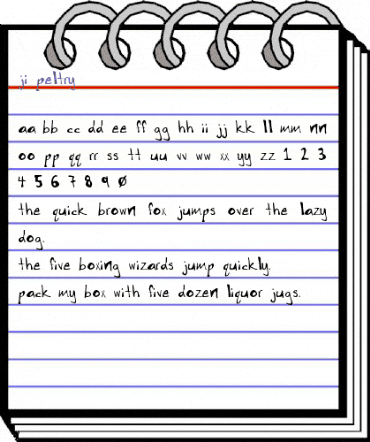 ji peltry
aa bb cc dd ee ff gg hh ii jj kk ll mm nn
oo pp qq rr ss tt uu vv ww xx yy zz 1 2 3
4 5 6 7 8 9 0
the quick brown fox jumps over the lazy
dog.
the five boxing wizards jump quickly.
pack my box with five dozen liquor jugs.